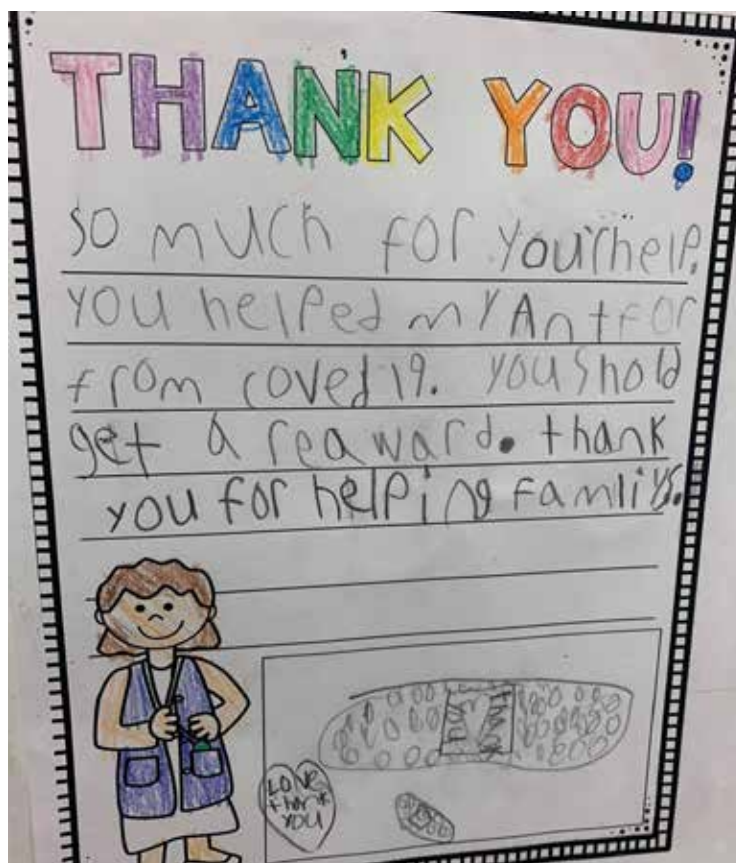 THANK YOU!
So much for your help.
You helped my Ant for
from coved 19. You shold
get a reaward. thank
you for helping Familys.
thank
you
LOVE
thank
YOU